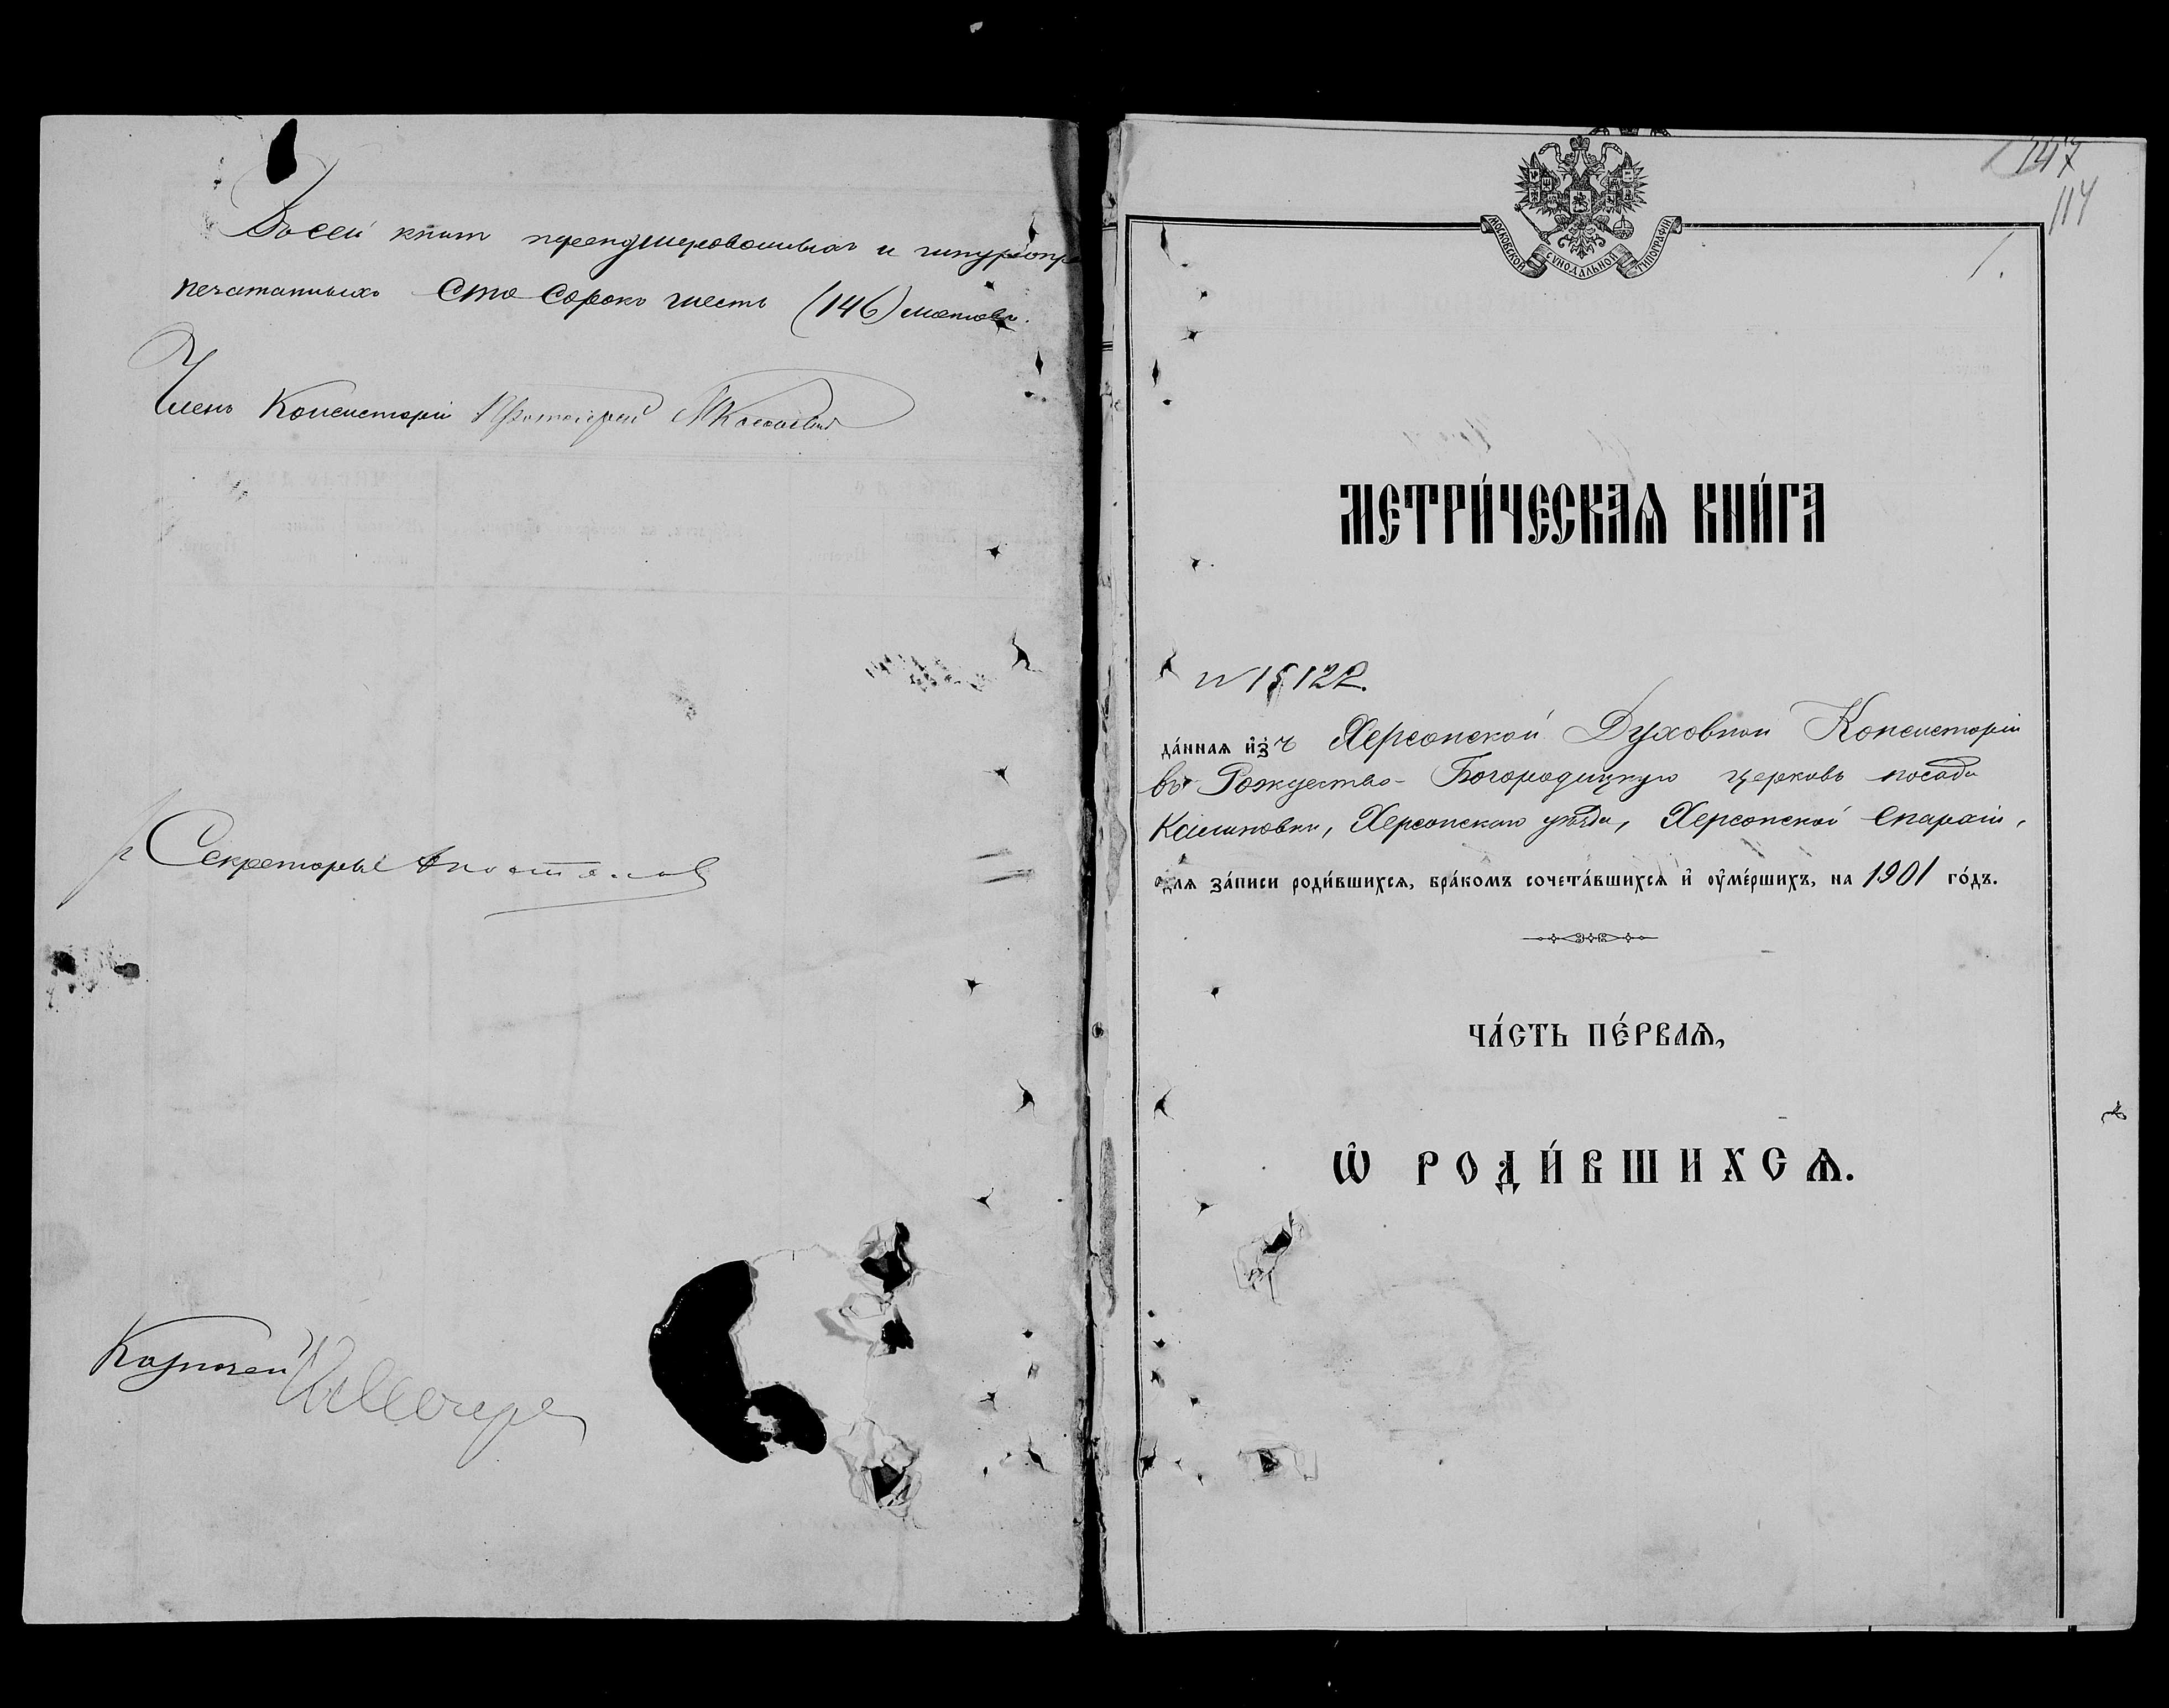 Въ сей книгѣ перенумерованныхъ и шнуропри
печатанныхъ сто сорокъ шесть (146) листовъ.
Членъ Консисторіи Протоіерей
Секретарь
Казначей
147
114
1.
МОСКОВСКОЙ СѴНОДАЛЬНОЙ ТИПОГРАФІИ
МЕТРИ́ЧЕСКАѦ КНИ́ГА
№ 15122.
да́ннаѧ и҆зъ Херсонской Духовной Консисторіи
въ Рождество-Богородицкую церковь посада
Калиновки, Херсонскаго уѣзда, Херсонской епархіи,
длѧ за́писи роди́вшихсѧ, бра́комъ сочета́вшихсѧ и҆ оу҆ме́ршихъ, на 1901 го́дъ.
ЧА́СТЬ ПЕ́РВАѦ,
Ѡ҆ РОДИ́ВШИХСѦ.